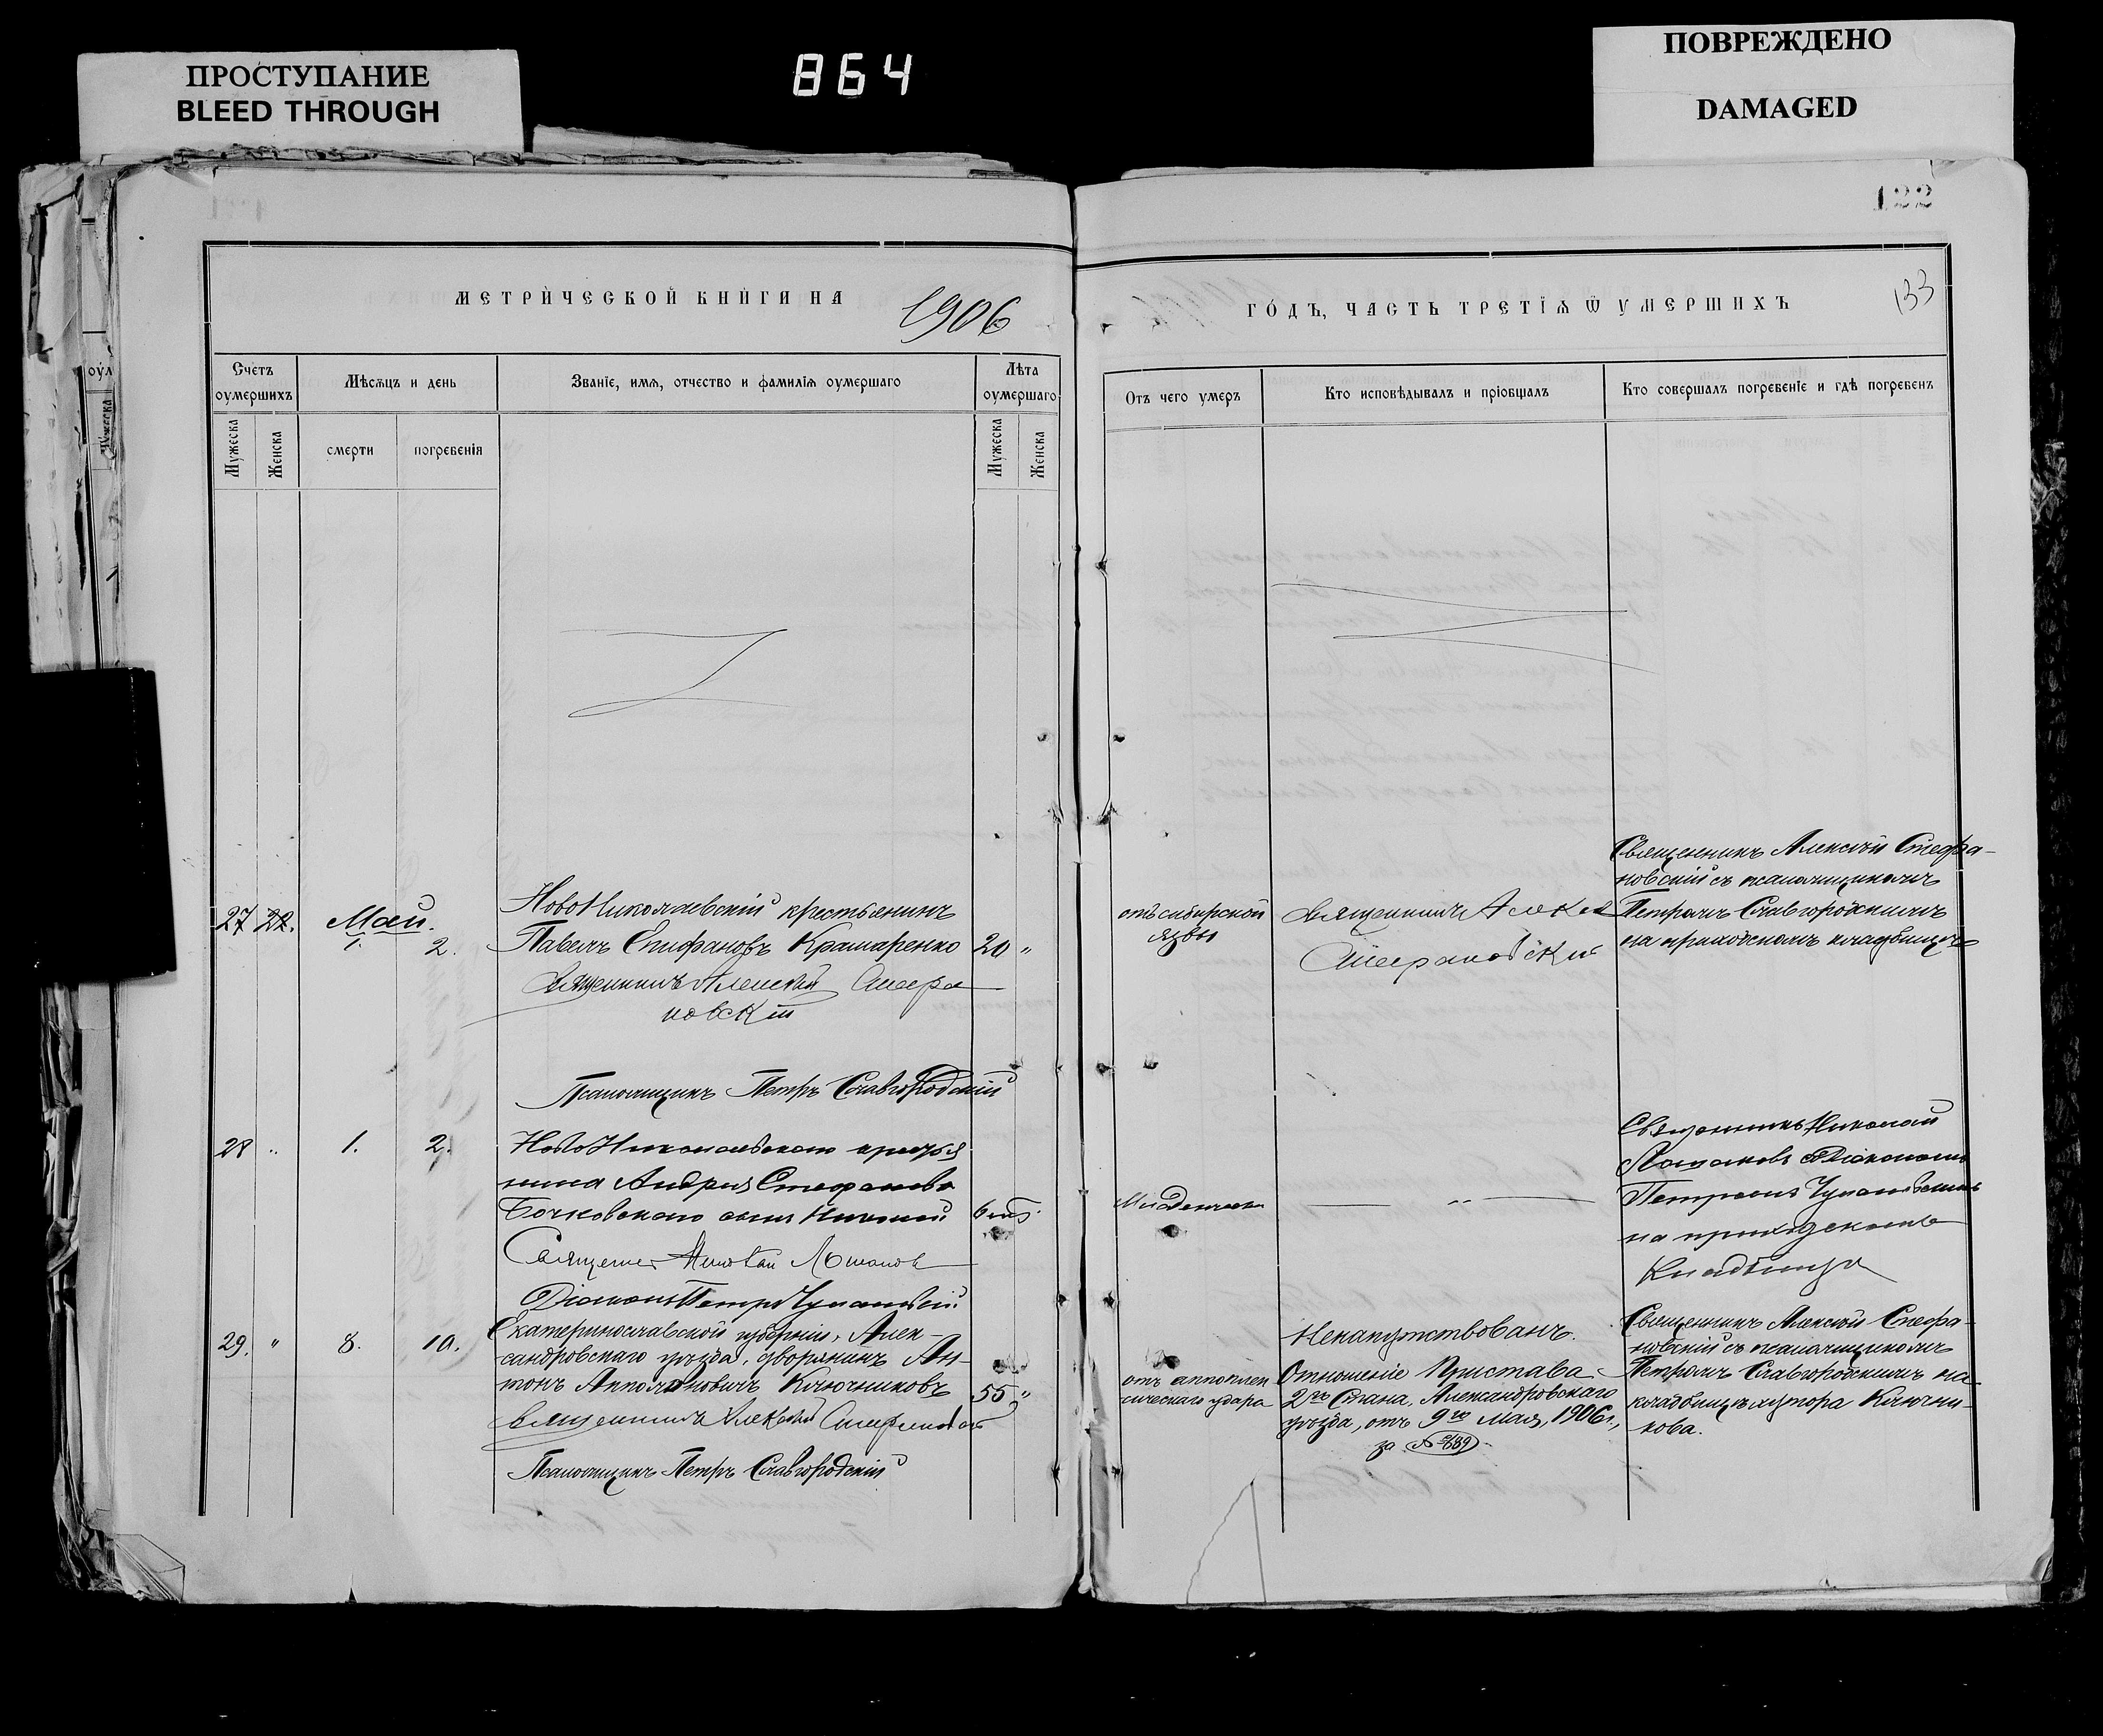 ПРОСТУПАНИЕ
BLEED THROUGH
864
ПОВРЕЖДЕНО
DAMAGED
122
МЕТРИЧЕСКОЙ КНИГИ НА 1906
ГОДЪ, ЧАСТЬ ТРЕТІѦ Ѿ УМЕРШИХЪ
133
Счетъ оумершихъ
Мѣсѧцъ и день
Званїе, имѧ, отчество и фамилїѧ оумершаго
Лѣта оумершаго
Мужеска
Женска
смерти
погребенїя
Мужеска
Женска
Отъ чего умеръ
Кто исповѣдывалъ и прїобщалъ
Кто совершалъ погребенїе и гдѣ погребенъ
27 22. Май. 1. 2.
НовоНиколаевскій крестьянинъ
Павелъ Епифановъ Крамаренко 20 "
Священникъ Алексѣй Стефа
новскій
Псаломщикъ Петръ Славгородскій
отъ сибирской
язвы
Священникъ Алексѣй
Стефановскій
Священникъ Алексѣй Стефа-
новскій съ псаломщикомъ
Петромъ Славгородскимъ
на приходскомъ кладбищѣ
28 " 1. 2.
НовоНиколаевскаго крестья
нина Андрея Стефанова
Бочковскаго сынъ Николай
Священник Николай
Діаконъ Петръ
Младенческ
"
Священникъ Николай
Діакономъ
Петромъ
на приходскомъ
Кладбищѣ
29. " 8. 10.
Екатеринославской губерніи, Алек-
сандровскаго уѣзда, дворянинъ Ан-
тонъ Апполоновичъ Ключниковъ 55 "
Священникъ Алексѣй
Псаломщикъ Петръ Славгородскій
отъ апоплек
сическаго удара
Ненапутствованъ.
Отношеніе Пристава
2го Стана, Александровскаго
уѣзда, отъ 9го Мая, 1906г.,
за №
Священникъ Алексѣй Стефа-
новскій съ псаломщикомъ
Петромъ Славгородскимъ на
кладбищѣ хутора Ключни-
кова.